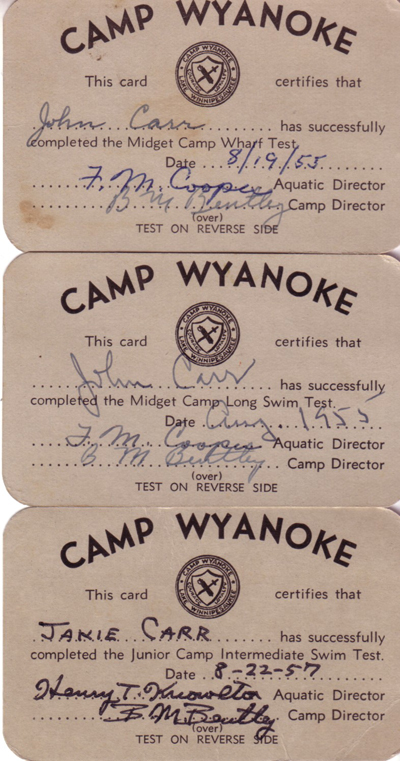 CAMP WYANOKE
CAMP WYANOKE
LAKE WINNIPESAUKEE
This card certifies that
John Carr has successfully
completed the Midget Camp Wharf Test.
Date 8/19/55
F. M. Cooper Aquatic Director
B M Bentley Camp Director
(over)
TEST ON REVERSE SIDE
CAMP WYANOKE
CAMP WYANOKE
LAKE WINNIPESAUKEE
This card certifies that
John Carr has successfully
completed the Midget Camp Long Swim Test.
Date Aug. 1955
F. M. Cooper Aquatic Director
B M Bentley Camp Director
(over)
TEST ON REVERSE SIDE
CAMP WYANOKE
CAMP WYANOKE
LAKE WINNIPESAUKEE
This card certifies that
JAKIE CARR has successfully
completed the Junior Camp Intermediate Swim Test.
Date 8-22-57
Henry T. Knowlton Aquatic Director
B. M. Bentley Camp Director
(over)
TEST ON REVERSE SIDE